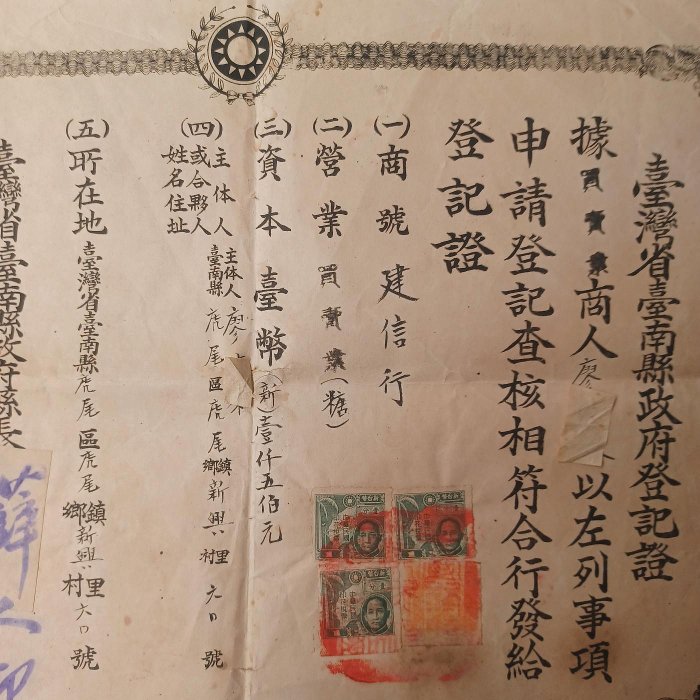 臺灣省臺南縣政府登記證
據買賣業商人廖以左列事項
申請登記查核相符合行發給
登記證
(一)商號 建信行
(二)營業 買賣業(糖)
(三)資本 臺幣(新)壹仟五佰元
(四)主体人或合夥人姓名住址
主体人 廖
臺南縣虎尾區虎尾鎮鄉新興村里六口號
(五)所在地 臺灣省臺南縣虎尾區虎尾鎮鄉新興村里六口號
臺灣省臺南縣政府縣長
薛人仰